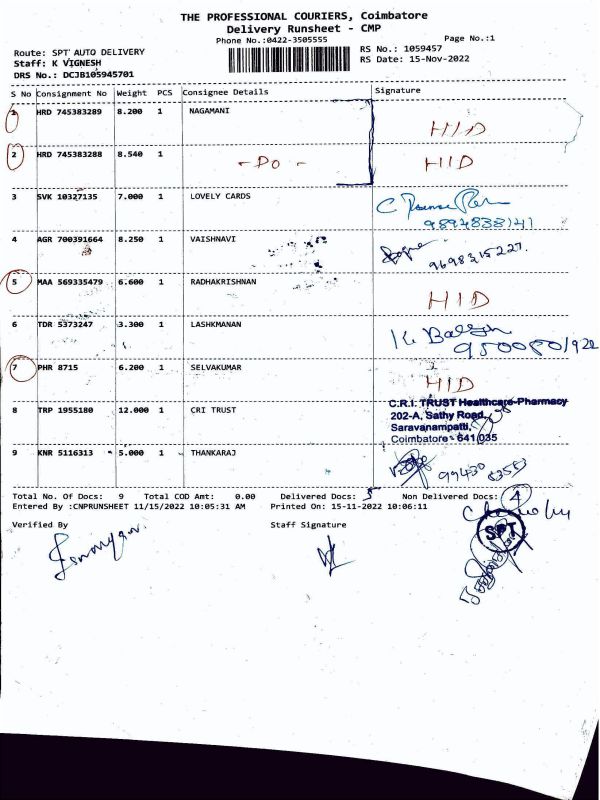 THE PROFESSIONAL COURIERS, Coimbatore
Delivery Runsheet - CMP
Phone No.:0422-3505555
Page No.:1
Route: SPT AUTO DELIVERY
RS No.: 1059457
Staff: K VIGNESH
RS Date: 15-Nov-2022
DRS No.: DCJB105945701
S No Consignment No Weight PCS Consignee Details Signature
1 HRD 745383289 8.200 1 NAGAMANI HID
2 HRD 745383288 8.540 1 - DO - HID
3 SVK 10327135 7.000 1 LOVELY CARDS
9894838141
4 AGR 700391664 8.250 1 VAISHNAVI 9698315227.
5 MAA 569335479 6.600 1 RADHAKRISHNAN HID
6 TDR 5373247 3.300 1 LASHKMANAN
7 PHR 8715 6.200 1 SELVAKUMAR HID
8 TRP 1955180 12.000 1 CRI TRUST
C.R.I. TRUST Healthcare-Pharmacy
202-A, Sathy Road,
Saravanampatti,
Coimbatore - 641 035
9 KNR 5116313 5.000 1 THANKARAJ
Total No. Of Docs: 9 Total COD Amt: 0.00 Delivered Docs: 5 Non Delivered Docs: 4
Entered By :CNPRUNSHEET 11/15/2022 10:05:31 AM Printed On: 15-11-2022 10:06:11
Verified By Staff Signature
SPT